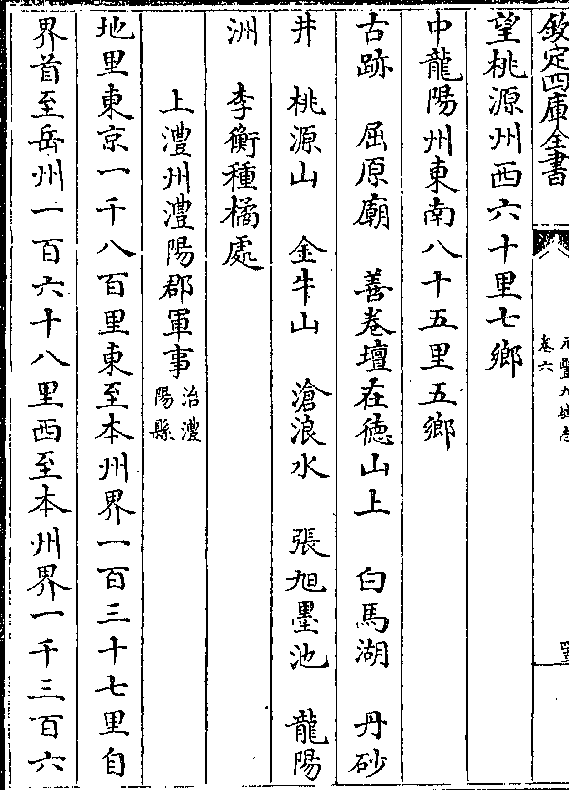 欽定四庫全書
元豐九域志
卷六
望桃源州西六十里七鄉
中龍陽州東南八十五里五鄉
古跡　屈原廟　善卷壇在德山上　白馬湖　丹砂
井　桃源山　金牛山　滄浪水　張旭墨池　龍陽
洲　李衡種橘處
上澧州澧陽郡軍事治澧陽縣
地里東京一千八百里東至本州界一百三十七里自
界首至岳州一百六十八里西至本州界一千三百六